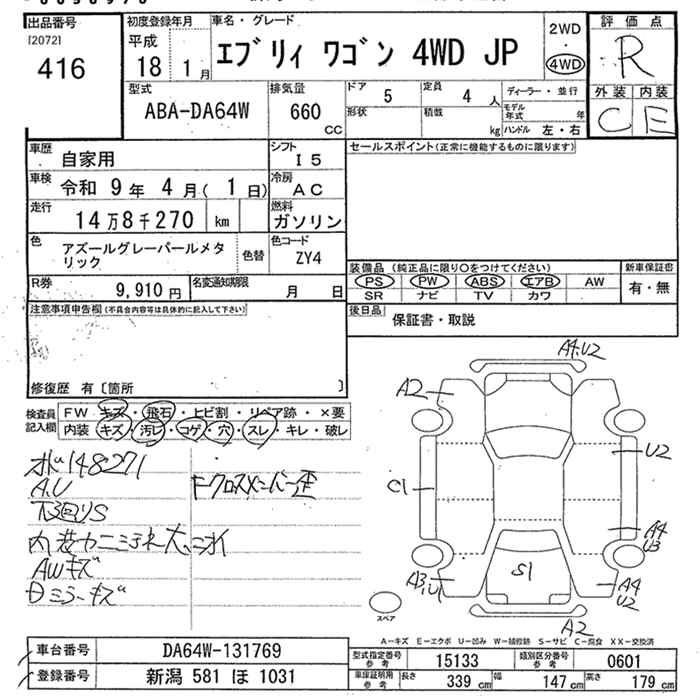 出品番号 初度登録年月 車名・グレード 2WD 評価点
[2072] 平成 エブリィ ワゴン 4WD JP ・ R
416 18 1月 4WD 外装 内装
型式 排気量 ドア 5 定員 4人 ディーラー・並行 C E
ABA-DA64W 660 CC 形状 積載 kg モデル年式 年
ハンドル 左・右
車歴 自家用 シフト I5 セールスポイント(正常に機能するものに限ります)
車検 令和 9年 4月(1日) 冷房 AC
走行 14万8千270 km 燃料 ガソリン
色 アズールグレーパールメタリック 色替 色コード ZY4
装備品(純正品に限り○をつけてください) 新車保証書
PS PW ABS エアB AW 有・無
SR ナビ TV カワ
R券 9,910円 名変通知期限 月 日
後日品 保証書・取説
注意事項申告欄(不具合内容等は具体的に記入して下さい)
修復歴 有〔箇所 〕
検査員記入欄 FW キズ・飛石・ヒビ割・リペア跡・×要
内装 キズ・汚レ・コゲ・穴・スレ・キレ・破レ
148271
A.U
下回りS
AWキズ
Dミラーキズ
Fクロスメンバー歪
A4.U2
A2
U2
C1
A4
U3
S1
A3.U1
A4
U2
A2
スペア
A-キズ E-エクボ U-凹み W-補修跡 S-サビ C-腐食 XX-交換済
車台番号 DA64W-131769
登録番号 新潟 581 ほ 1031
型式指定番号 参考 15133 類別区分番号 参考 0601
車庫証明用 参考 長さ 339 cm 幅 147 cm 高さ 179 cm